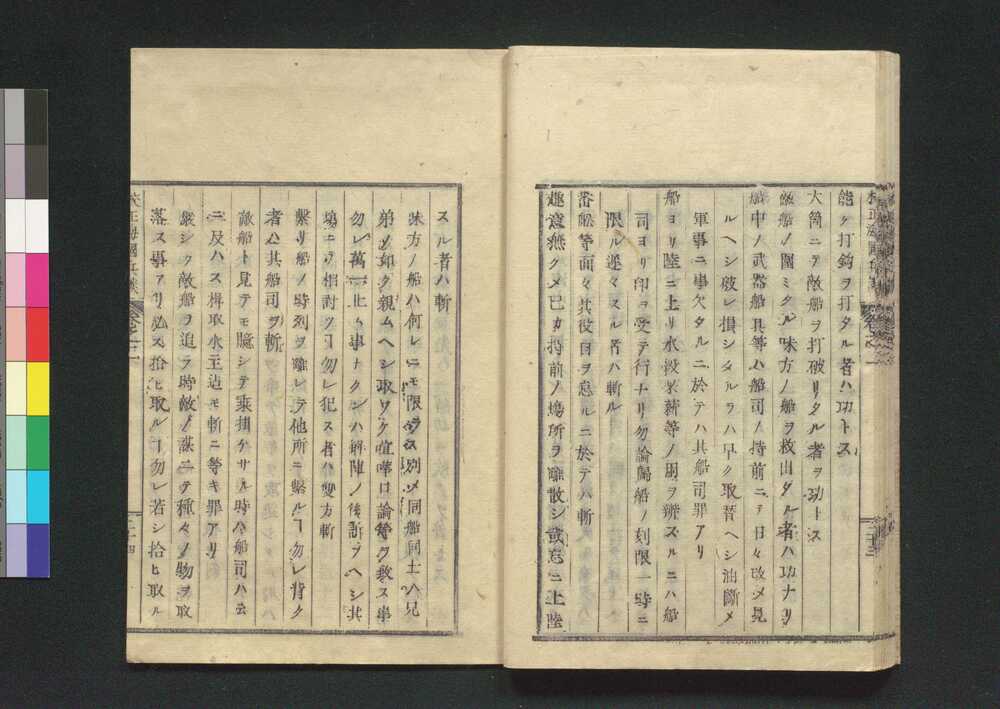 能ク打鈎ヲ打タル者ハ功トス
大筒ニテ敵船ヲ打破リタル者ヲ功トス
敵船ノ圍ミタル味方ノ船ヲ救出タル者ハ功ナリ
船中ノ武器船具等ハ船司ノ持前ニテ日々改メ見
ルヘシ破レ損シタルラハ早ク取替ヘシ油斷メ
軍事ニ事欠タルニ於テハ其船司罪アリ
船ヨリ陸ニ上リ水殺菜薪等ノ用ヲ辨スルニハ船
司ヨリ印ヲ受テ行ナリ勿論歸船ノ刻限一時ニ
限ル遅々スル者ハ斬ル
番船等面々其役目ヲ忘ルニ於テハ斬
趣意無クメ已カ持前ノ塲所ヲ離散シ或忘ニ上陸
スル者ハ斬
味方ノ船ハ何レニモ限ラス別メ同船同士ハ兄
弟ノ如ク親ムヘシ取ワケ喧嘩口論等ヲ致ス事
勿レ萬一止ム事ナクンハ解陣ノ後訴フヘシ其
塲ニテ相討ツヿ勿レ犯ス者ハ雙方斬
繫リ船ノ時列ヲ離レテ他所ニ繫ルヿ勿レ背ク
者ハ其船司ヲ斬
敵船ト見テモ臆シテ乘掛ケサル時ハ船司ハ云
ニ及ハス楫取水主迠モ斬ニ等キ罪アリ
嚴シク敵船ヲ追フ時敵ノ謀ニテ種々ノ物ヲ取
落ス事アリ必ス拾ヒ取ルヿ勿レ若シ拾ヒ取ル